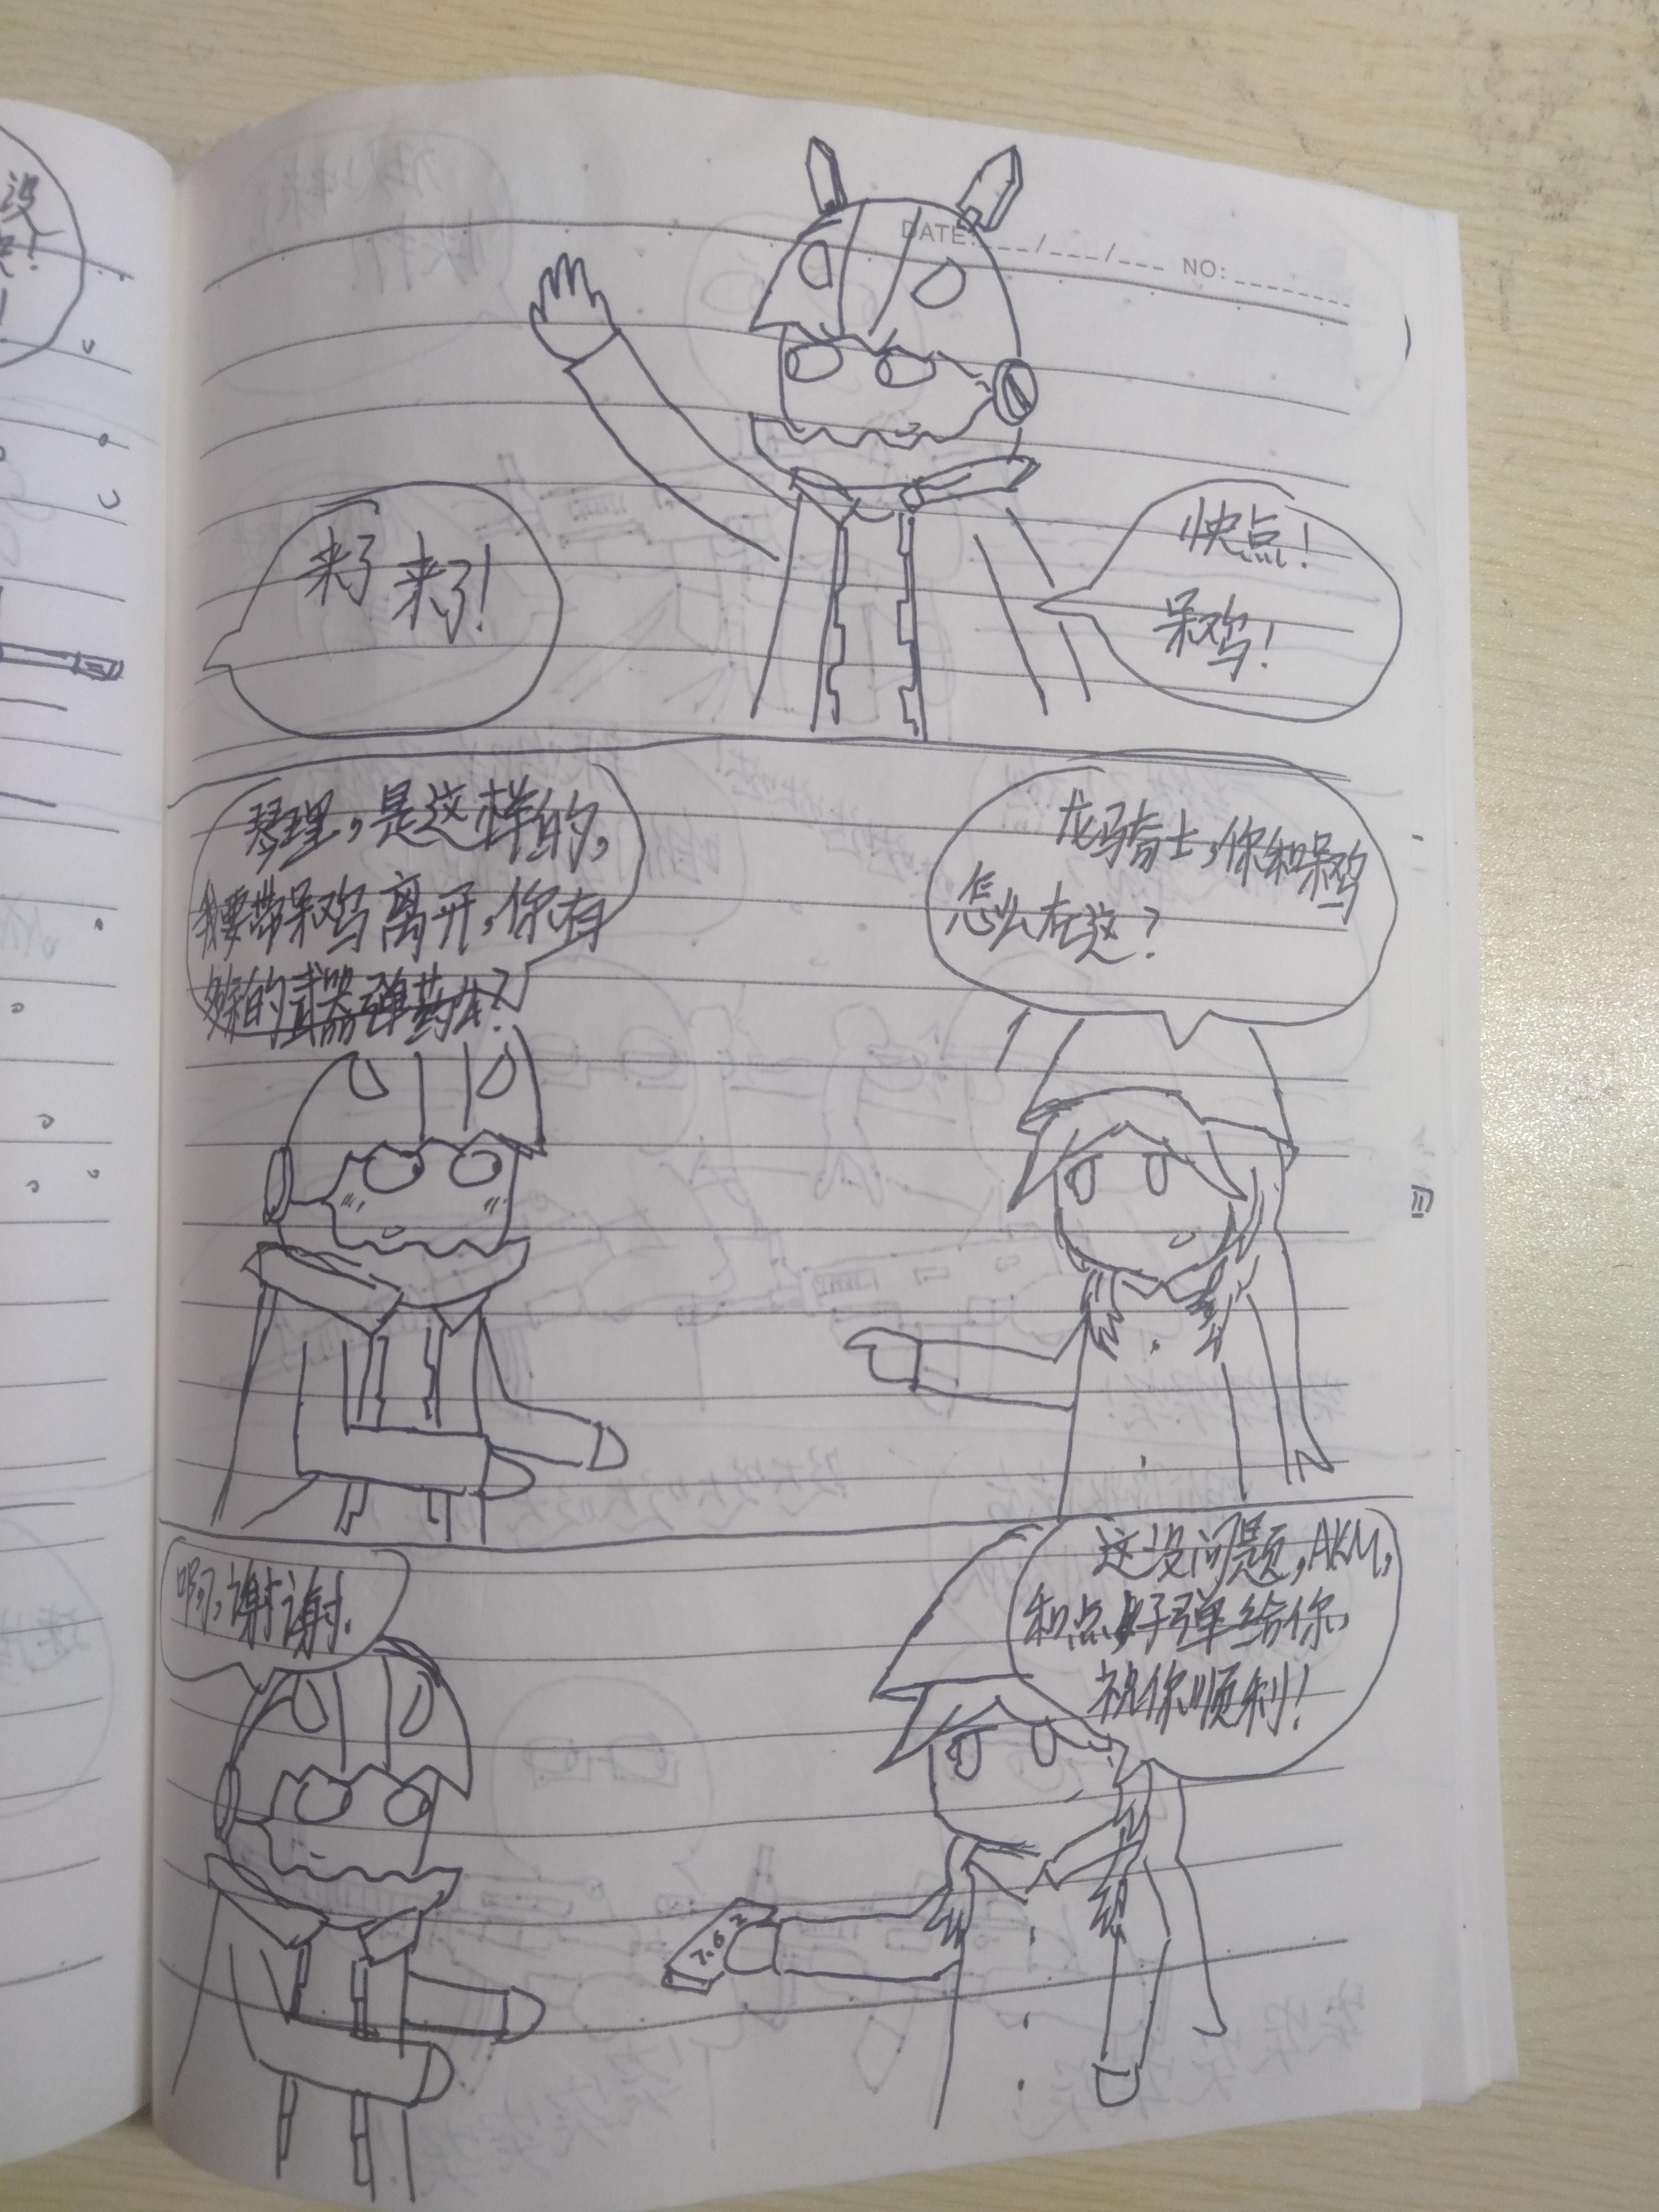 没
!
!
DATE: ___/___/___ NO: ______
快点!
呆鸡!
来了来了!
龙骑士,你和呆鸡
怎么在这?
琴理,是这样的,
我要带呆鸡离开,你有
多余的武器弹药么?
这没问题,AKM,
和点好弹给你,
祝你顺利!
啊,谢谢.
7.62